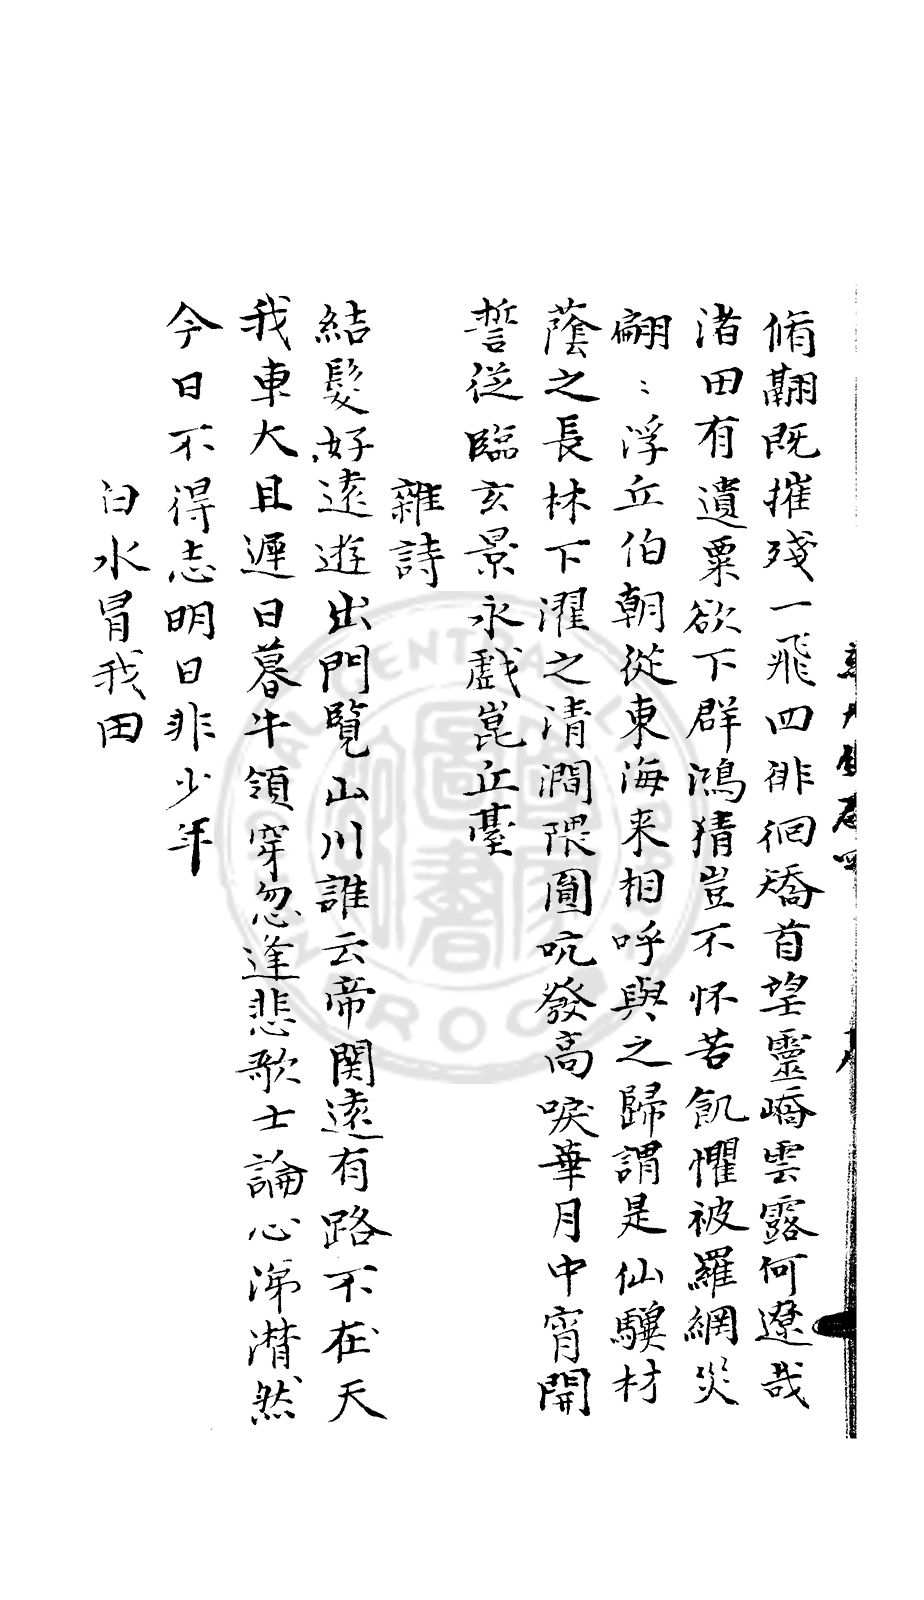 脩翮既摧殘一飛四徘徊矯首望靈嶠雲露何遼哉
渚田有遺粟欲下群鴻猜豈不怀苦飢懼被羅網災
翩〻浮丘伯朝從東海来相呼與之歸謂是仙驥材
蔭之長林下濯之清澗隈圓吭發高唳華月中宵開
誓従臨玄景永戲崑丘臺
雜詩
結髮好遠遊出門覽山川誰云帝関遠有路不在天
我車大且遲日暮牛領穿忽逢悲歌士論心涕潸然
今日不得志明日非少年
白水冒我田